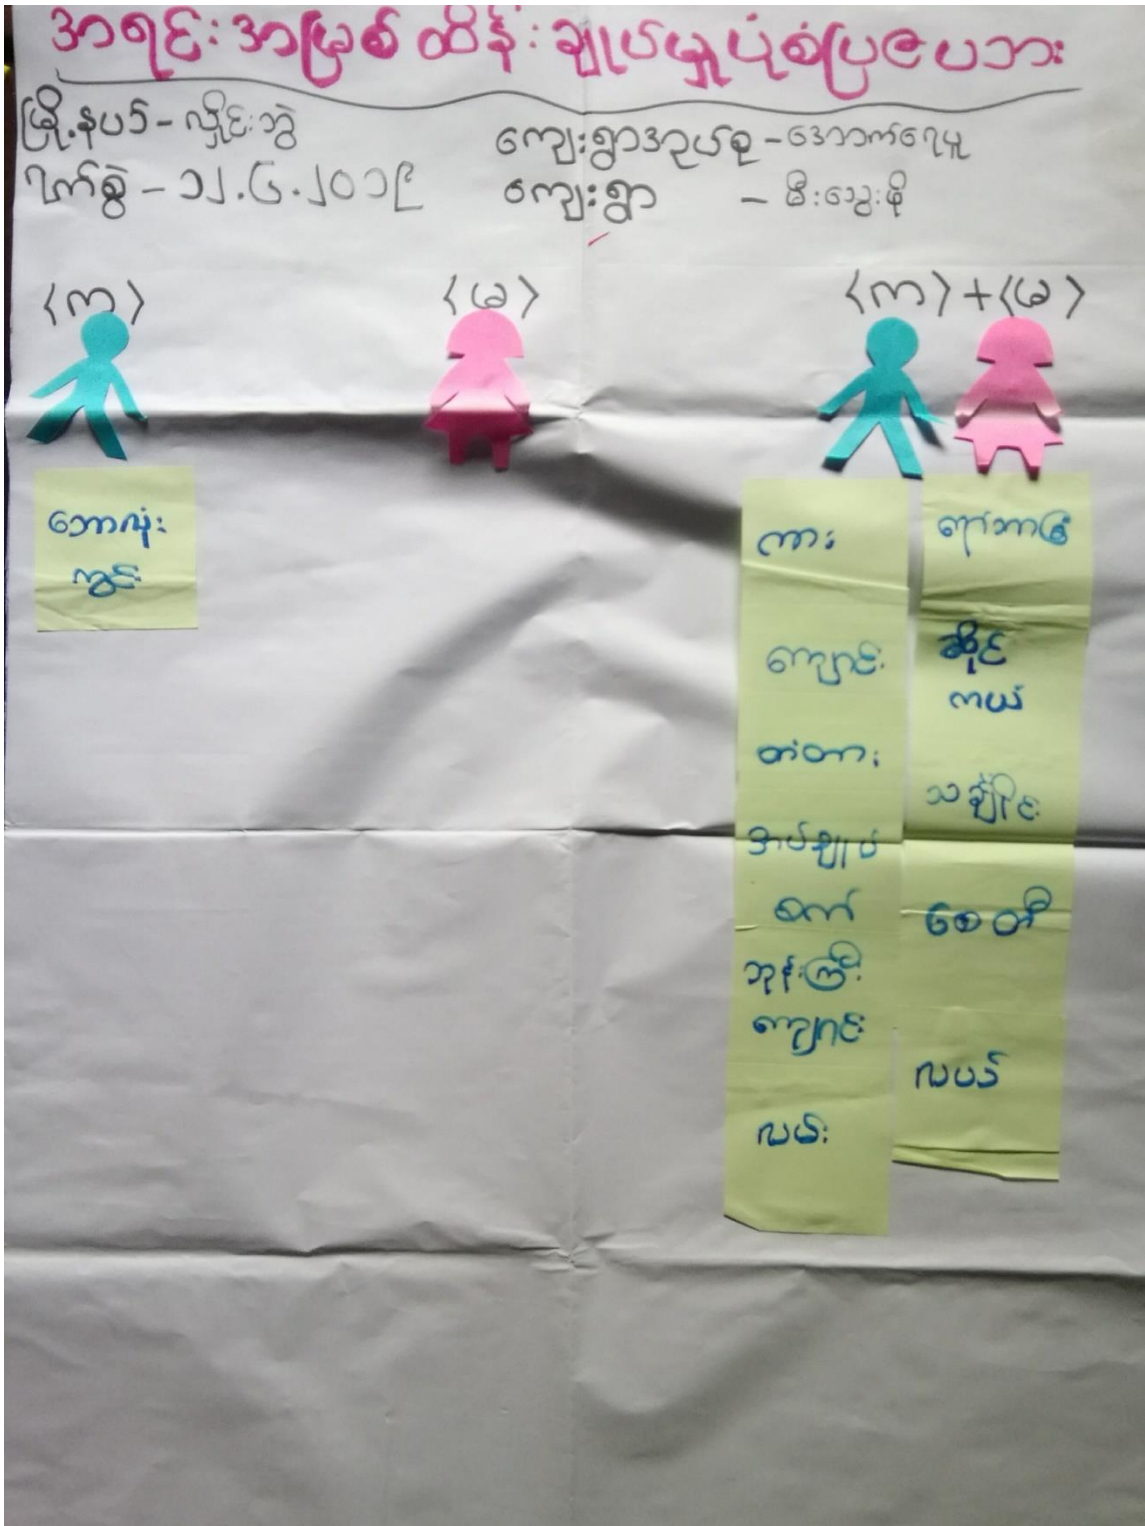 အရင်းအမြစ်ထိန်းချုပ်မှုပုံစံပြဇယား
မြို့နယ် - လှိုင်းဘွဲ
ကျေးရွာအုပ်စု - အောက်ရေပူ
ရက်စွဲ - ၁၂.၆.၂၀၁၉
ကျေးရွာ - မီးသွေးဖို
(က)
(မ)
(က) + (မ)
ဘောလုံး
ကွင်း
ကား
ကျောင်း
တံတား
အပ်ချုပ်
စက်
ဘုန်းကြီး
ကျောင်း
လမ်း
ရော်ဘာခြံ
ဆိုင်
ကယ်
သင်္ချိုင်း
စေတီ
လယ်